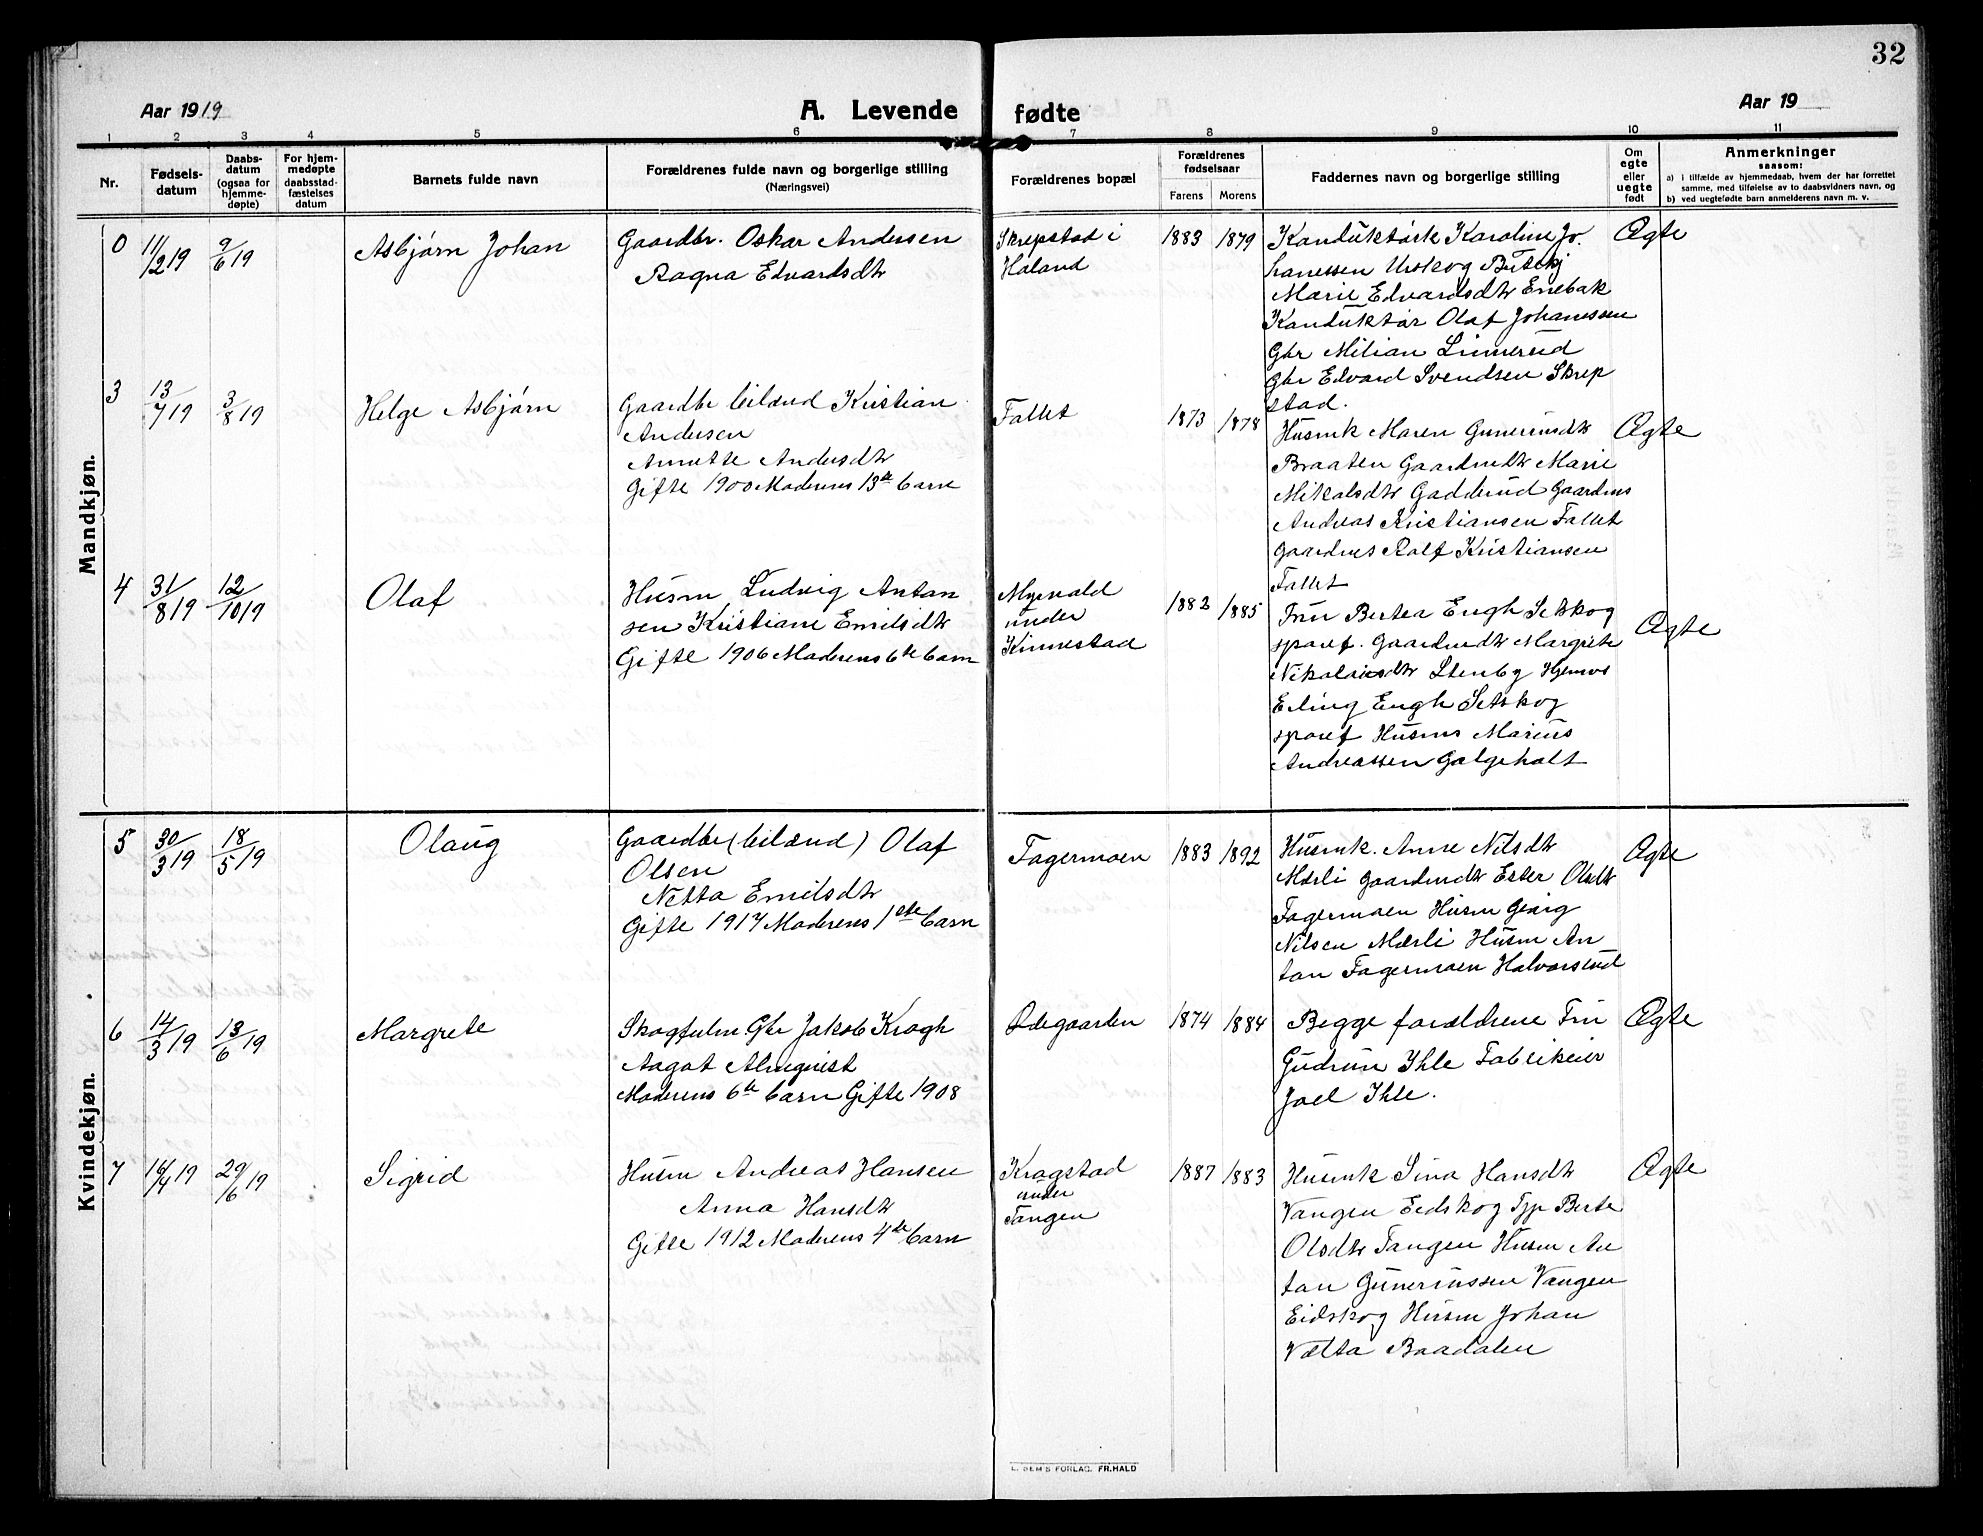 32
Aar 1919
A. Levende fødte
Aar 19
1 2 3 4 5 6 7 8 9 10 11
Nr.
Fødsels-
datum
Daabs-
datum
(ogsaa for
hjemme-
døpte)
For hjem-
medøpte
daabsstad-
fæstelses
datum
Barnets fulde navn
Forældrenes fulde navn og borgerlige stilling
(Næringsvei)
Forældrenes bopæl
Forældrenes
fødselsaar
Farens Morens
Faddernes navn og borgerlige stilling
Om
egte
eller
uegte
født
Anmerkninger
saasom:
a) i tilfælde av hjemmedaab, hvem der har forrettet
samme, med tilføielse av to daabsvidners navn, og
b) ved uegtefødte barn anmelderens navn m. v.
Mandkjøn.
0 11/2 19 9/6 19 Asbjørn Johan
Gaardbr. Oskar Andersen
Ragna Edvardsdtr
Skrepstad i
Høland
1883 1879
Konduktørk Karoline Jo.
hanessen Urskog
Marie Edvardsdtr Enebak
Konduktør Olaf Johanessen
Gbr Milian Linnerud
Gbr Edvard Svendsen Skrep
stad.
Ægte
3 13/7 19 3/8 19 Helge Asbjørn
Gaardbr leilænd Kristian
Andersen
Annette Andersdtr
Gifte 1900 Moderens 13de barn
Fallet
1873 1878
Husmk Maren Gunerinsdtr
Braaten Gaardmdtr Marie
Mikalsdtr Gadderud Gaardms
Andreas Kristiansen Fallet
Gaardms Ralf Kristiansen
Fallet
Ægte
4 31/8 19 12/10 19 Olaf
Husm Ludvig Anton
sen Kristiane Emilsdtr
Gifte 1906 Moderens 6te barn
Myrvold
under
Kinnestad
1882 1885
Fru Bertea Engh Setskog
sporef. Gaardmdtr Margrete
Nikolaisdtr Stenby Hjemvs
Erling Engh Setskog
sporef Husms Marius
Andreassen Golgeholt
Ægte
Kvindekjøn.
5 30/3 19 18/5 19 Olaug
Gaardbr (leilænd) Olaf
Olsen
Netta Emilsdtr
Gifte 1917 Moderens 1ste barn
Fagermoen
1883 1892
Husmk. Anne Nilsdtr
Mærli Gaardmdtr Ester Olsdtr
Fagermoen Husm Georg
Nilsen Mærli Husm An
ton Fagermoen Halvorsrud
Ægte
6 14/3 19 13/6 19 Margrete
Skogfulm. Gbr Jakob Krogh
Aagot Almquist
Moderens 6te barn Gifte 1908
Ødegaarden
1874 1884
Begge forældrene Fru
Gudrun Ihle Fabrikeier
Joel Ihle.
Ægte
7 14/4 19 29/6 19 Sigrid
Husm Andreas Hansen
Anna Hansdtr
Gifte 1912 Moderens 4de barn
Krogstad
under
Tangen
1887 1883
Husmk Sina Hansdtr
Vangen Eidskog Tjp Berte
Olsdtr Tangen Husm An
ton Gunerinssen Vangen
Eidskog Husm Johan
Vætta Baadalen
Ægte
E. SEM'S FORLAG, FR.HALD